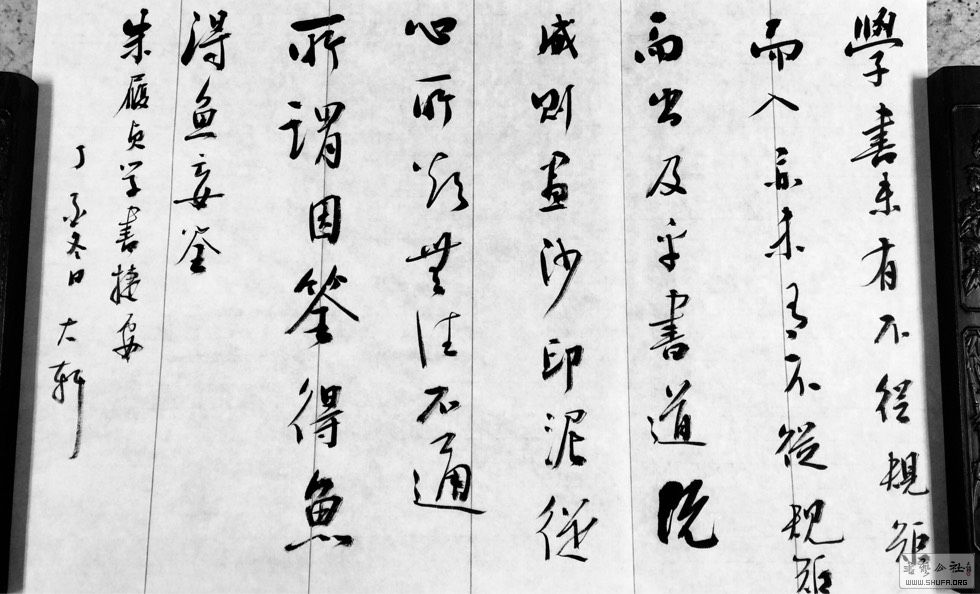 學書未有不從規矩
而入亦未有不從規矩
而出及乎書道既
成則畫沙印泥從
心所欲無往不通
所謂因筌得魚
得魚妄筌
朱履貞学書捷要
丁亥冬日 大軒
書學公社
WWW.SHUFA.ORG